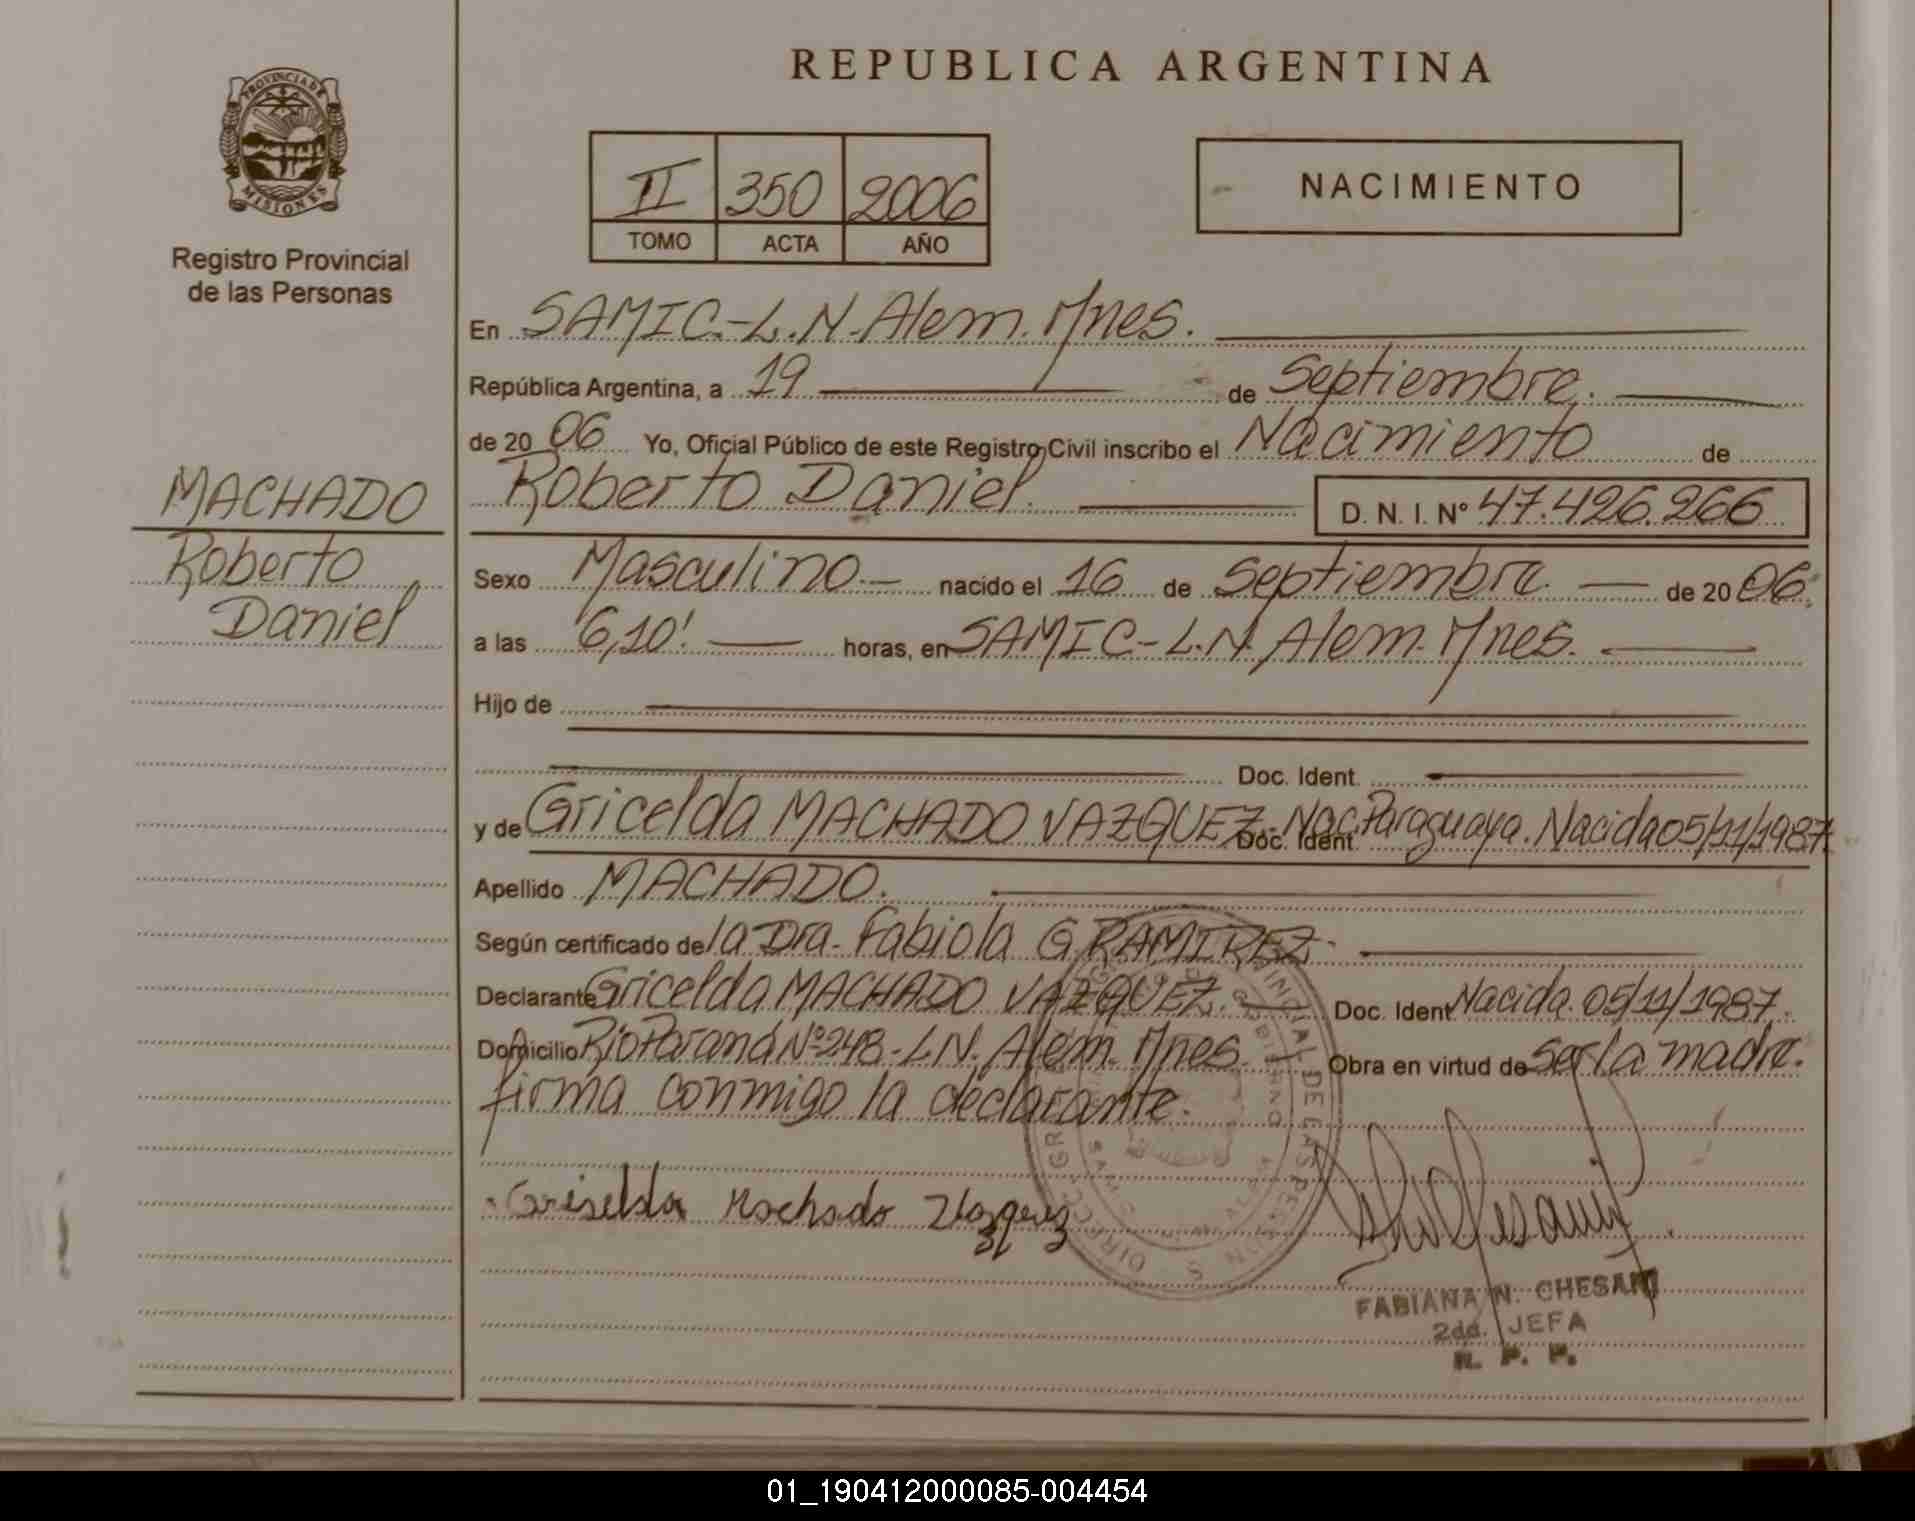 REPUBLICA ARGENTINA
PROVINCIA DE
MISIONES
Registro Provincial
de las Personas
II 350 2006
TOMO ACTA AÑO
NACIMIENTO
En SAMIC.-L.N.Alem.Mnes.
República Argentina, a 19 de Septiembre.
de 20 06 Yo, Oficial Público de este Registro Civil inscribo el Nacimiento de
Roberto Daniel. D. N. I. N° 47.426.266
MACHADO
Roberto
Daniel
Sexo Masculino. nacido el 16 de Septiembre. de 20 06.
a las 6,10'. horas, en SAMIC-L.N. Alem. Mnes.
Hijo de
Doc. Ident.
y de Gricelda MACHADO VAZQUEZ.- Doc. Ident. Nac.Paraguaya. Nacida 05/11/1987.
Apellido MACHADO.
Según certificado de la Dra. Fabiola G.RAMIREZ.
Declarante Gricelda MACHADO VAZQUEZ. Doc. Ident Nacida. 05/11/1987.
Domicilio Rio Paraná Nº248-L.N. Alem. Mnes. Obra en virtud de ser la madre.
firma conmigo la declarante.
Griselda Machado Vazquez
FABIANA N. CHESANI
2da. JEFA
R. P. P.
01_190412000085-004454